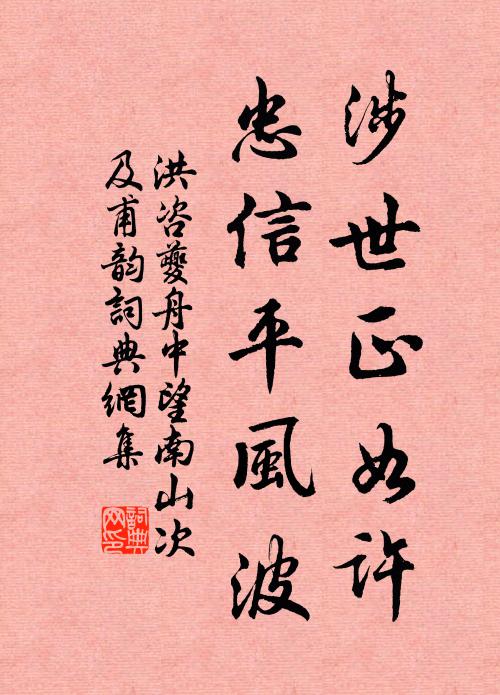 涉世正如許
忠信平風波
洪咨夔舟中望南山次
及甫韵詞典網集
詞典网印